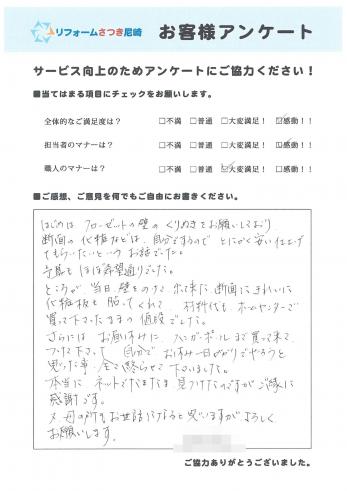 リフォームさつき尼崎 お客様アンケート
サービス向上のためアンケートにご協力ください！
■当てはまる項目にチェックをお願いします。
全体的なご満足度は？ □不満 □普通 □大変満足！ ☑感動！！
担当者のマナーは？ □不満 □普通 □大変満足！ ☑感動！！
職人のマナーは？ □不満 □普通 ☑大変満足！ □感動！！
■ご感想、ご意見を何でもご自由にお書きください。
はじめは、クローゼットの壁のくりぬきをお願いしており
断面の化粧などは、自分でするので とにかく安い仕上げ
でもらいたいという お話でした。
予算も ほぼ希望通りでした。
ところが 当日、壁をのけて 出て来た断面にきれいに
化粧板を 貼ってくれて 材料代も、ホームセンターで
買って下さったままの値段でした。
さらには お昼休みに、ハンガーポールまで買って来て
つけて下さって 自分で お休み一日がかりでやろうと
思った事 全て終らせて下さいました。
本当に ネットでたまたま 見つけたのですが ご縁に
感謝です。
又、母の所もお世話になると思いますが、よろしく
お願いします。
ご協力ありがとうございました。